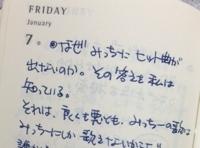 FRIDAY
January
7. ◉なぜ みっちーに ヒット曲が
出ないのか。その答えを私は
知っている。
それは、良くも悪くも、みっちーの歌は
みっちーにしか歌えないからだ